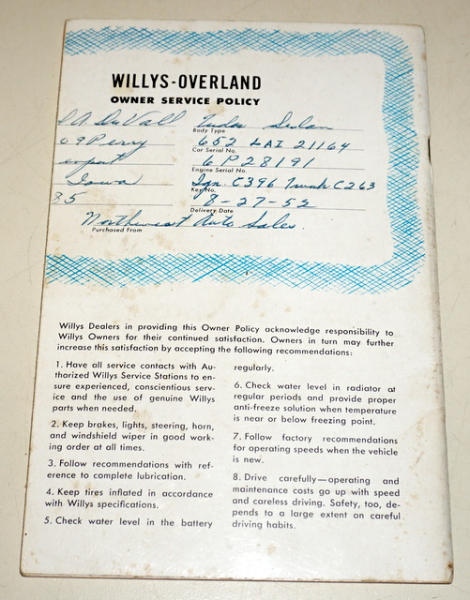 WILLYS-OVERLAND
OWNER SERVICE POLICY
A. DuVall Tudor Sedan
Body Type
09 Perry 652 LA1 21164
Car Serial No.
6P28191
Engine Serial No.
Iowa Ign. C396 Trunk C263
Key No.
35 8-27-52
Delivery Date
Northwest Auto Sales.
Purchased From
Willys Dealers in providing this Owner Policy acknowledge responsibility to
Willys Owners for their continued satisfaction. Owners in turn may further
increase this satisfaction by accepting the following recommendations:
1. Have all service contacts with Au-
thorized Willys Service Stations to en-
sure experienced, conscientious serv-
ice and the use of genuine Willys
parts when needed.
2. Keep brakes, lights, steering, horn,
and windshield wiper in good work-
ing order at all times.
3. Follow recommendations with ref-
erence to complete lubrication.
4. Keep tires inflated in accordance
with Willys specifications.
5. Check water level in the battery
regularly.
6. Check water level in radiator at
regular periods and provide proper
anti-freeze solution when temperature
is near or below freezing point.
7. Follow factory recommendations
for operating speeds when the vehicle
is new.
8. Drive carefully—operating and
maintenance costs go up with speed
and careless driving. Safety, too, de-
pends to a large extent on careful
driving habits.